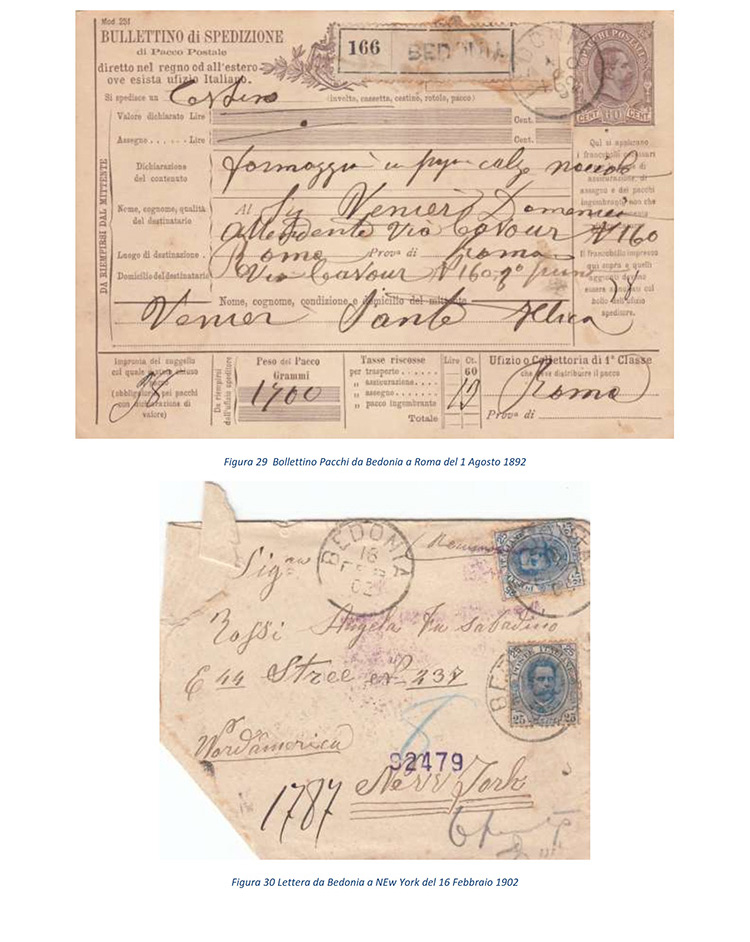 Mod. 251
BULLETTINO di SPEDIZIONE
di Pacco Postale
diretto nel regno od all'estero
ove esista ufizio Italiano.
166 BEDONIA
Si spedisce un Cestino (involto, cassetta, cestino, rotolo, pacco)
Valore dichiarato Lire Cent.
Assegno . . . . . . Lire Cent.
DA RIEMPIRSI DAL MITTENTE
Dichiarazione
del contenuto
formaggio
Nome, cognome, qualità
del destinatario
Al Sig Venier Domenico
Via Cavour N 160
Luogo di destinazione . Roma Prov.a di Roma
Domicilio del destinatario Via Cavour N 160
Nome, cognome, condizione e domicilio del mittente
Venier Sante
CENT 60 CENT
Qui si applicano
i francobolli
Il francobollo impresso
qui sopra e quelli
aggiunti devono
essere annullati col
bollo dell'ufizio
speditore.
Impronta del suggello
col quale è stato chiuso
pacco
(obbligatoria pei pacchi
con dichiarazione di
valore)
Da riempirsi
dall'ufizio speditore
Peso del Pacco
Grammi
1700
Tasse riscosse Lire Ct.
per trasporto . . . . . 60
„ assicurazione. . . .
„ assegno . . . . . .
„ pacco ingombrante
Totale
Ufizio o Collettoria di 1ª Classe
che deve distribuire il pacco
Roma
Prov.a di
Figura 29 Bollettino Pacchi da Bedonia a Roma del 1 Agosto 1892
BEDONIA
16
FEB
02
Sig.na
Rossi Angela fu Sabadino
E 44 Stree N- 237
Nord'america
92479
New York
1787
POSTE ITALIANE
25 25
BE
Figura 30 Lettera da Bedonia a NEw York del 16 Febbraio 1902